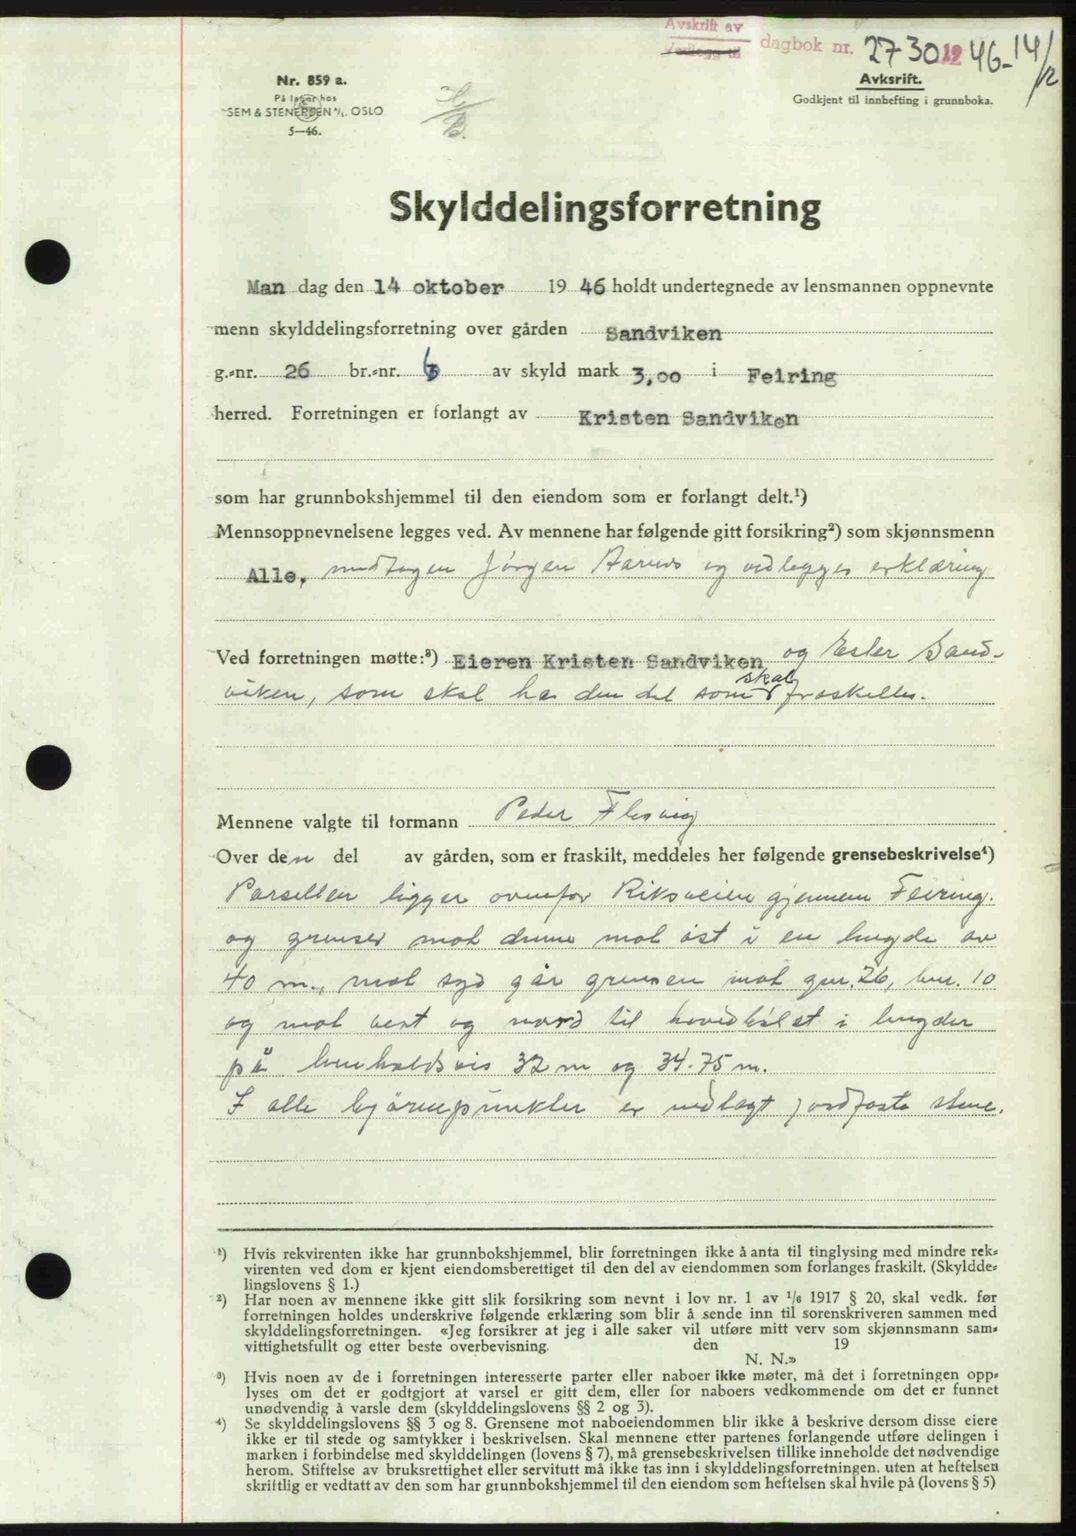 Avskrift av
Vedlegg til
dagbok nr. 2730 1946-14/12
Nr. 859 a.
På lager hos
SEM & STENERSEN A/S. OSLO
5—46.
Avskrift.
Godkjent til innhefting i grunnboka.
Skylddelingsforretning
Man dag den 14 oktober 19 46 holdt undertegnede av lensmannen oppnevnte
menn skylddelingsforretning over gården Sandviken
g.-nr. 26 br.-nr. 6 av skyld mark 3,00 i Feiring
herred. Forretningen er forlangt av Kristen Sandviken
som har grunnbokshjemmel til den eiendom som er forlangt delt.¹)
Mennsoppnevnelsene legges ved. Av mennene har følgende gitt forsikring²) som skjønnsmenn
Alle, undtagen Jörgen Aarnes og vedlegges erklæring
Ved forretningen møtte:³) Eieren Kristen Sandviken og Ester Sand-
viken, som skal ha den del som skal fraskilles.
Mennene valgte til formann Peder Flesvig
Over den del av gården, som er fraskilt, meddeles her følgende grensebeskrivelse⁴)
Parsellen ligger ovenfor Riksveien gjennem Feiring.
og grenser mot denne mot öst i en lengde av
40 m., mot syd går grensen mot gnr. 26, bnr. 10
og mot vest og nord til hovedbölet i lengder
på henholdsvis 32 m og 34.75 m.
I alle hjörnepunkter er nedlagt jordfaste stene.
¹) Hvis rekvirenten ikke har grunnbokshjemmel, blir forretningen ikke å anta til tinglysing med mindre rek-
virenten ved dom er kjent eiendomsberettiget til den del av eiendommen som forlanges fraskilt. (Skyldde-
lingslovens § 1.)
²) Har noen av mennene ikke gitt slik forsikring som nevnt i lov nr. 1 av 1/6 1917 § 20, skal vedk. før
forretningen holdes underskrive følgende erklæring som blir å sende inn til sorenskriveren sammen med
skylddelingsforretningen. «Jeg forsikrer at jeg i alle saker vil utføre mitt verv som skjønnsmann sam-
vittighetsfullt og etter beste overbevisning. den 19
N. N.»
³) Hvis noen av de i forretningen interesserte parter eller naboer ikke møter, må det i forretningen opp-
lyses om det er godtgjort at varsel er gitt dem, eller for naboers vedkommende om det er funnet
unødvendig å varsle dem (skylddelingslovens §§ 2 og 3).
⁴) Se skylddelingslovens §§ 3 og 8. Grensene mot naboeiendommen blir ikke å beskrive dersom disse eiere
ikke er til stede og samtykker i beskrivelsen. Skal mennene etter partenes forlangende utføre delingen i
marken i forbindelse med skylddelingen (lovens § 7), må grensebeskrivelsen tillike inneholde det nødvendige
herom. Stiftelse av bruksrettighet eller servitutt må ikke tas inn i skylddelingsforretningen. uten at heftelsen
skriftlig er vedtatt av den som har grunnbokshjemmel til den eiendom som heftelsen skal hvile på (lovens § 5)